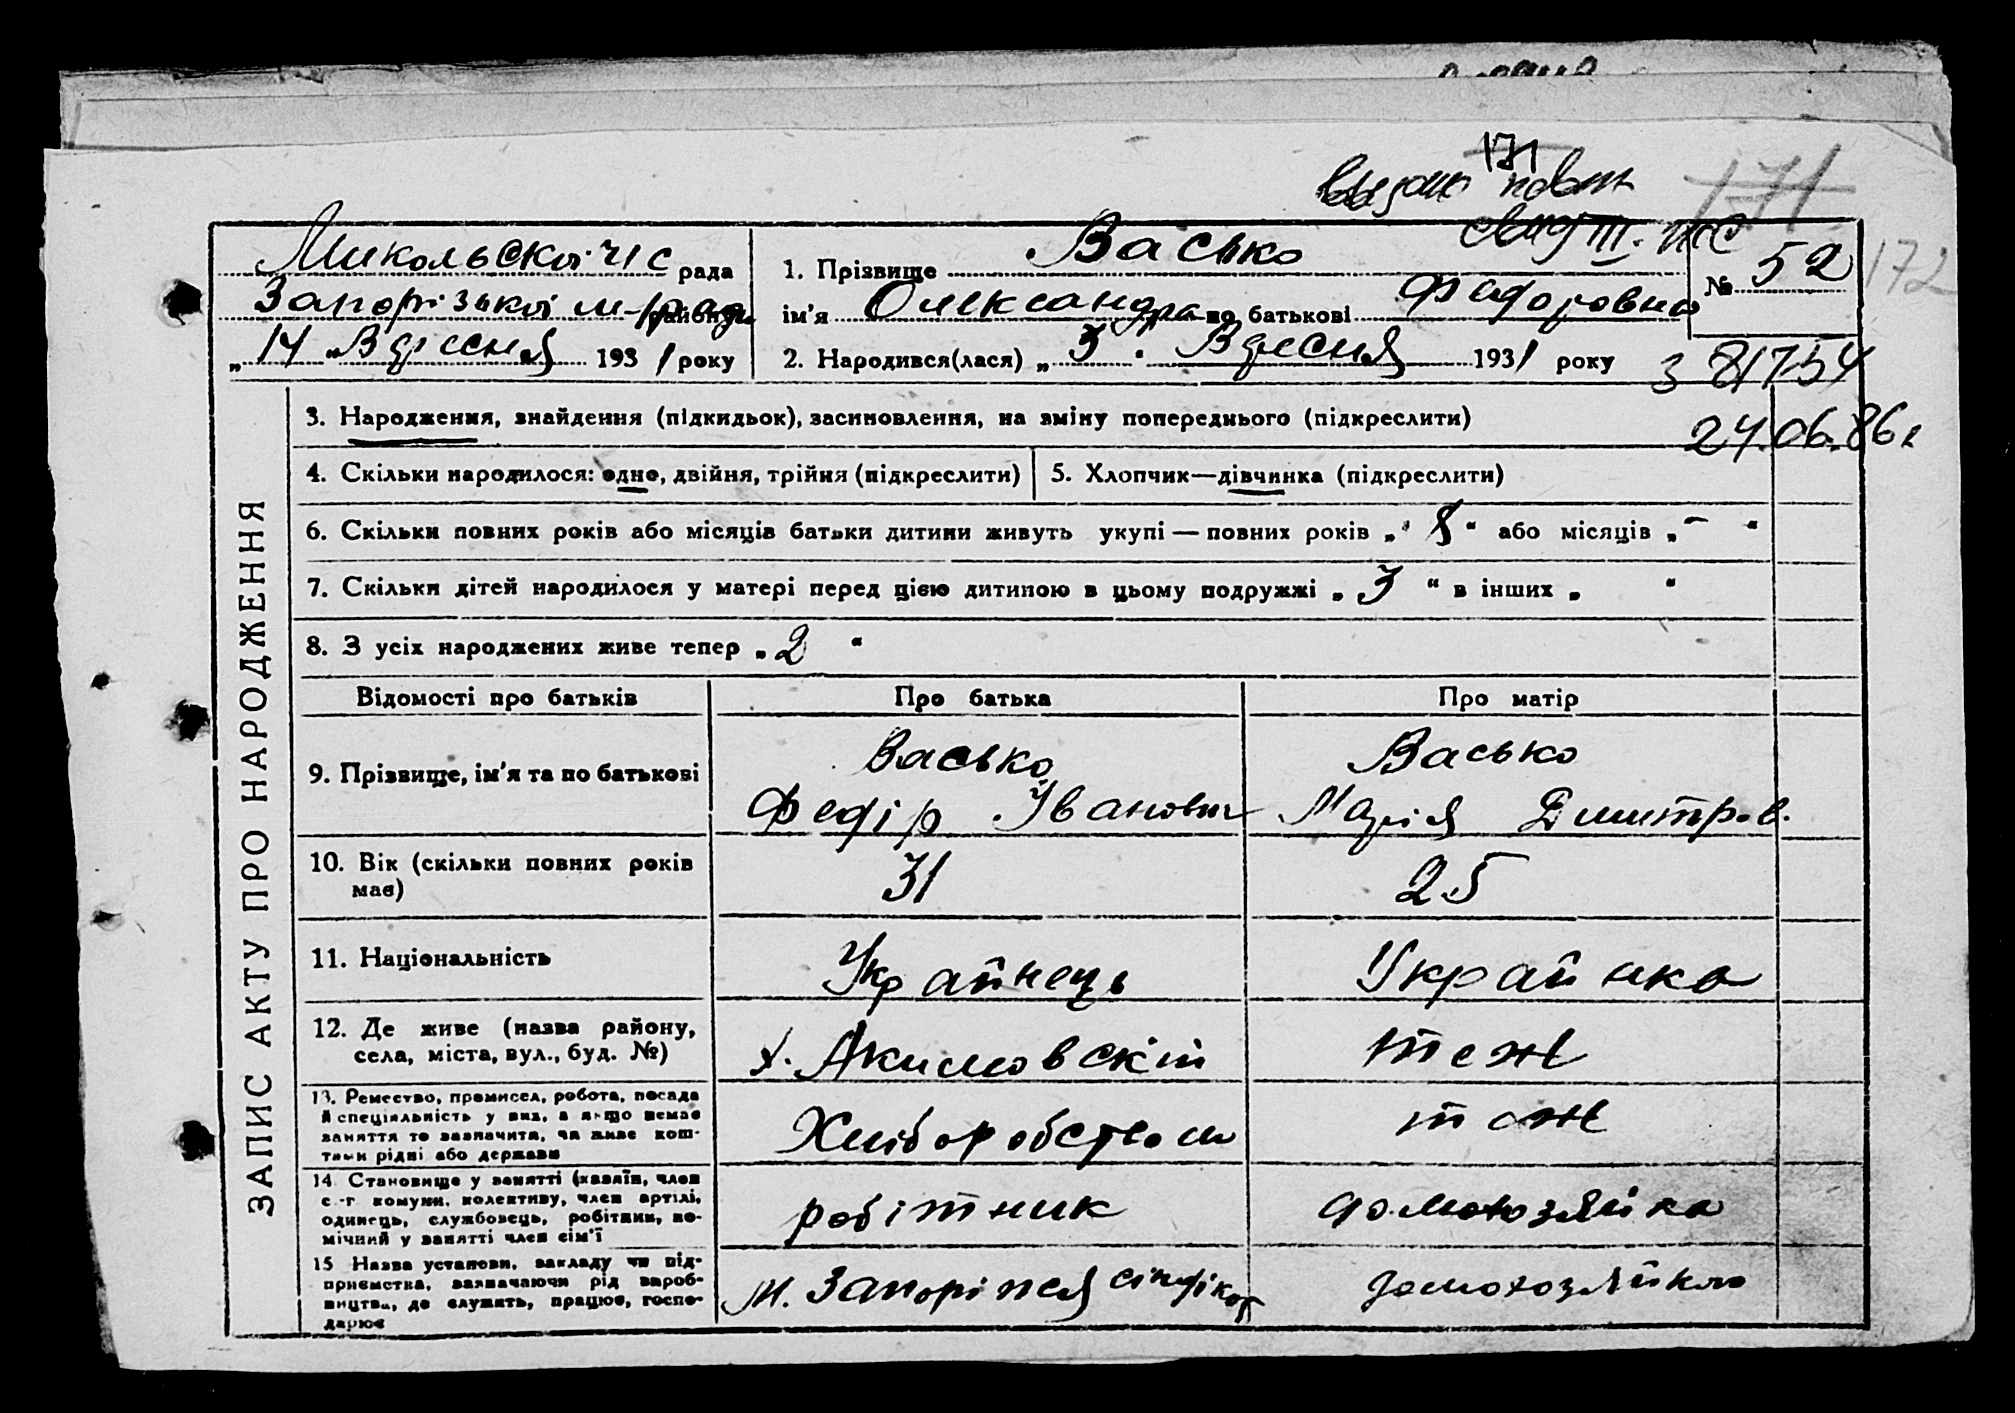 171
171
172
Микольскої ч/с рада
Запорізької м-ради району
„14“ Вресня 1931 року
1. Прізвище Васько
ім'я Олександра по батькові Федоровна
2. Народився(лася) „3“ Вресня 1931 року
№ 52
81754
24.06.86г
ЗАПИС АКТУ ПРО НАРОДЖЕННЯ
3. Народження, знайдення (підкидьок), засиновлення, на зміну попереднього (підкреслити)
4. Скільки народилося: одно, двійня, трійня (підкреслити)
5. Хлопчик—дівчинка (підкреслити)
6. Скільки повних років або місяців батьки дитини живуть укупі — повних років „8“ або місяців „–“
7. Скільки дітей народилося у матері перед цією дитиною в цьому подружжі „3“ в інших „ “
8. З усіх народжених живе тепер „2“
Відомості про батьків
Про батька
Про матір
9. Прізвище, ім'я та по батькові
Васько
Федір Іванович
Васько
Марія Дмитров.
10. Вік (скільки повних років
має)
31
25
11. Національність
Украйнець
Украйнка
12. Де живе (назва району,
села, міста, вул., буд. №)
х. Акимовскій
теж
13. Ремество, промисел, робота, посада
й спеціяльність у них, а якщо немає
заняття то зазначити, чи живе кош-
тами рідні або держави
Хліборобством
теж
14. Становище у занятті (хазяїн, член
с.-г. комуни, колективу, член артілі,
одинець, службовець, робітник, по-
мічний у занятті член сім'ї
робітник
домохозяйка
15 Назва установи, закладу чи під-
приємства, зазначаючи рід вироб-
ництва, де служить, працює, госпо-
дарює
м. Запоріжся
домохозяйкою